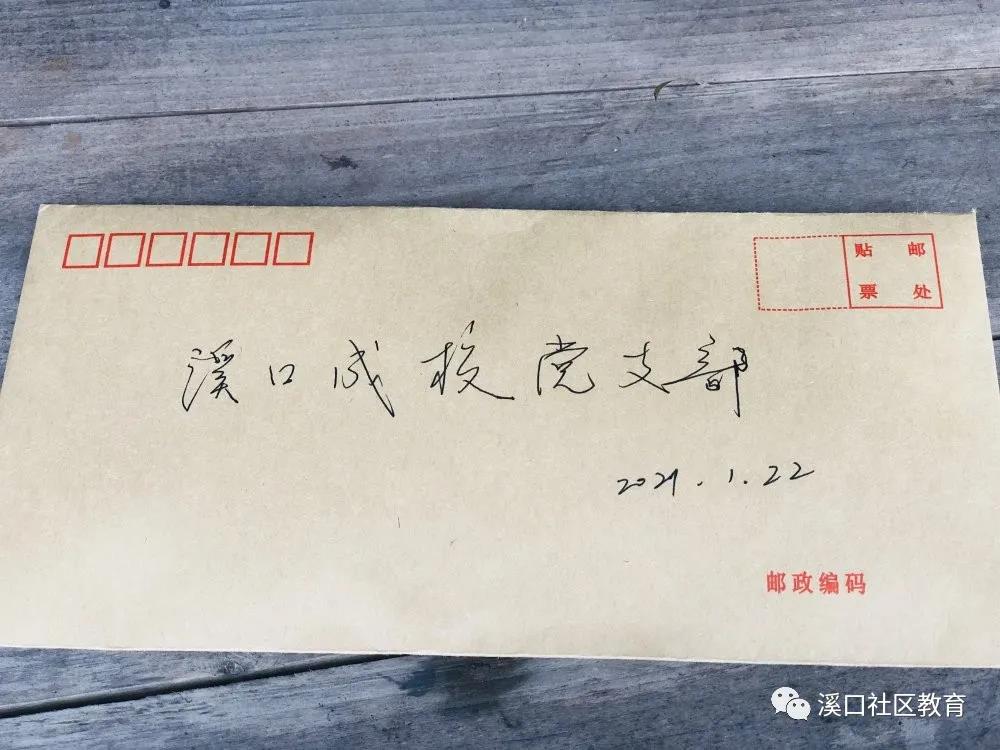 贴 邮
票 处
溪口成校党支部
2021.1.22
邮政编码
溪口社区教育